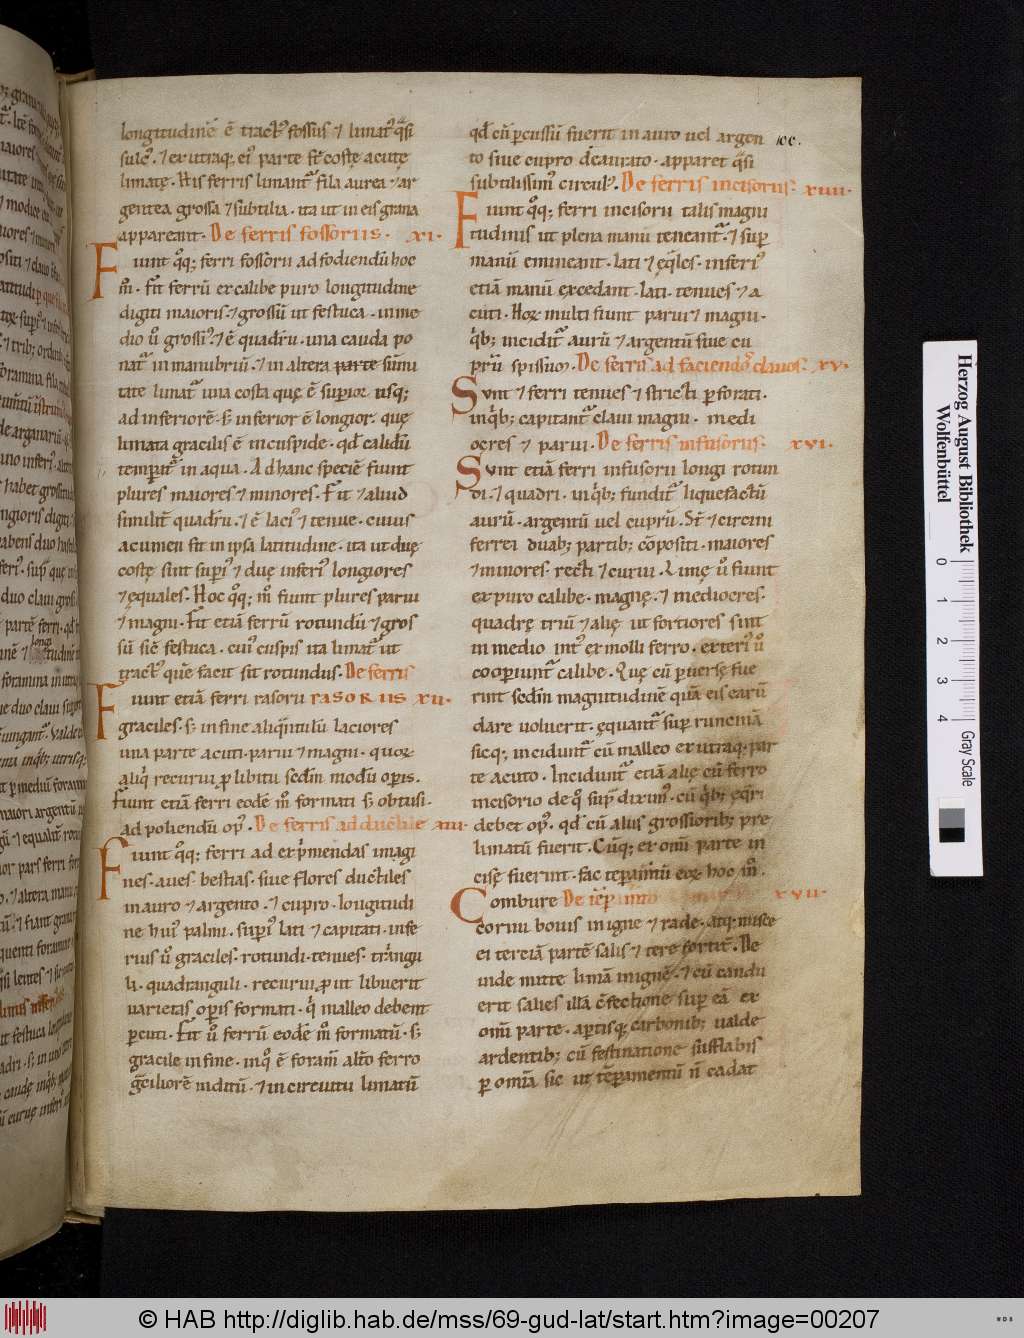 longitudinē ē tract᷒ fossus ⁊ limat᷒ q̄si
sulc᷒. ⁊ ex utraq; ei᷒ parte fīt costę acutę
limatę. His ferris limant᷒ fila aurea ⁊ ar
gentea grossa ⁊ subtilia. ita ut in eis grana
appareant. De ferris fossoriis. XI.
Fiunt q̊q; ferri fossorii ad fodiendū hoc
m̊. Fit ferrū ex calibe puro longitudine
digiti maioris. ⁊ grossū ut festuca. in me
dio ů grossi᷒. ⁊ ē quadrū. una cauda po
nat᷒ in manubriū. ⁊ in altera parte sūmi
tate limat᷒ una costa quę ē superior usq;
ad inferiorē. s; inferior ē longior. quę
limata gracilis ē in cuspide. qd̄ calidū
temperat᷒ in aqua. Ad hanc speciē fiunt
plures maiores ⁊ minores. Fit ⁊ aliud
similit̄ quadrū. ⁊ ē laci᷒ ⁊ tenue. cuius
acumen fit in ipsa latitudine. ita ut duę
costę sint superi᷒ ⁊ duę inferi᷒ longiores
⁊ ęquales. Hoc q̊q; m̊ fiunt plures parui
⁊ magni. Fit etiā ferrū rotundū ⁊ gros
sū sic festuca. cui᷒ cuspis ita limat᷒ ut
tract᷒ quē facit sit rotundus. De ferris
Fiunt etiā ferri rasorii RASORIIS XII.
graciles. s; in fine aliq̄ntulū laciores
una parte acuti. parui ⁊ magni. quoꝝ
aliq̇ recurui ꝓ libitu sed̄m modū oꝑis.
Fiunt etiā ferri eodē m̊ formati s; obtusi.
ad poliendū op᷒. De ferris ad ductile XIII.
Fiunt q̊q; ferri ad exp̄mendas imagi
nes. aues. bestias. siue flores ductiles
in auro ⁊ argento. ⁊ cupro. longitudi
ne hui᷒ palmi. superi᷒ lati ⁊ capitati. infe
rius ů graciles. rotundi. tenues. trāngu
li. quadranguli. recurui. ꝓ ut libuerit
uarietas oꝑis formati. q̇ malleo debent
ꝑcuti. Fit ů ferrū eodē m̊ formatū. s;
gracile in fine. in q̊ ē foram̄ alt̊o ferro
g̊ciliorē inditū. ⁊ in circuitu limatū
qd̄ cū ꝑcussū fuerit in auro uel argen 100.
to siue cupro d̄eaurato. apparet q̄si
subtilissim᷒ circul᷒. De ferris incisoriis. XIIII.
Fiunt q̊q; ferri incisorii talis magni
tudinis ut plena manu teneant᷒. ⁊ sup̄
manū emineant. lati ⁊ ęq̄les. inferi᷒
etiā manū excedant. lati. tenues ⁊ a
cuti. Hoꝝ multi fiunt parui ⁊ magni.
q̇b; incidit᷒ aurū ⁊ argentū siue cu
prū spissuo. De ferris ad faciendos clauos. XV.
Sunt ⁊ ferri tenues ⁊ stricti ꝑforati.
in q̇b; capitant᷒ claui magni. medi
ocres ⁊ parui. De ferris infusoriis. XVI.
Sunt etiā ferri infusorii longi rotun
di. ⁊ quadri. in q̇b; fundit᷒ liquefactū
aurū. argentū uel cuprū. St̄ ⁊ circini
ferrei duab; partib; cōpositi. maiores
⁊ minores. recti ⁊ curui. Limę ů fiunt
ex puro calibe. magnę. ⁊ mediocres.
quadrę triū ⁊ alię ut fortiores sint
in medio int᷒ ex molli ferro. exteri᷒ ů
cooꝑiunt᷒ calibe. Quę cū ꝑuersę fue
rint sed̄m magnitudinē quā eis earū
dare uoluerit. ęquant᷒ sup̄ runcinā
sicq; incidunt᷒ cū malleo ex utraq; par
te acuto. Incidunt᷒ etiā alię cū ferro
incisorio de q̊ sup̄ dixim᷒. cū q̇b; ęq̄ri
debet op᷒. qd̄ cū aliis grossiorib; pre
limatū fuerit. Cūq; ex omī parte in
cisę fuerint. fac tēꝑam̄tū eoꝝ hoc m̊.
Combure De tēꝑam̄to XVII.
cornu bouis in igne ⁊ rade. atq; misce
ei terciā partē salis ⁊ tere fortit̄. De
inde mitte limā in ignē. ⁊ cū candu
erit salies illā c̄fectione sup̄ eā ex
omī parte. aꝑtisq; carbonib; ualde
ardentib; cū festinatione sufflabis
ꝑ omīa sic ut tēꝑamentū n̄ cadat
Herzog August Bibliothek
Wolfenbüttel
0 1 2 3 4
Gray Scale
© HAB http://diglib.hab.de/mss/69-gud-lat/start.htm?image=00207
WDB